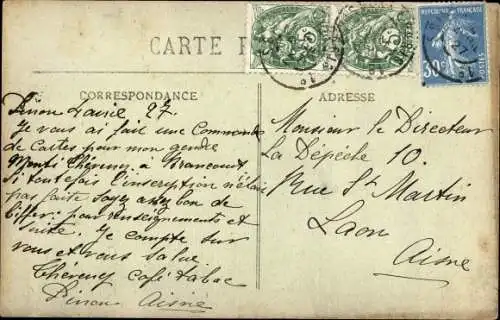 CARTE P
CORRESPONDANCE
ADRESSE
Pinon 27.
Je vous ai fait une Commande
de Cartes pour mon gendre
Monti Théreney à Brancourt
Si toutefois l'inscription n'était
pas faite Soyez assez bon de
biffer. pour renseignements et
suite. Je compte sur
vous et vous salue.
Théreney Café-tabac
Pinon Aisne
Monsieur le Directeur
La Dépêche 10.
Rue St Martin
Laon
Aisne
FRANÇAISE
30c
POSTES
5
5